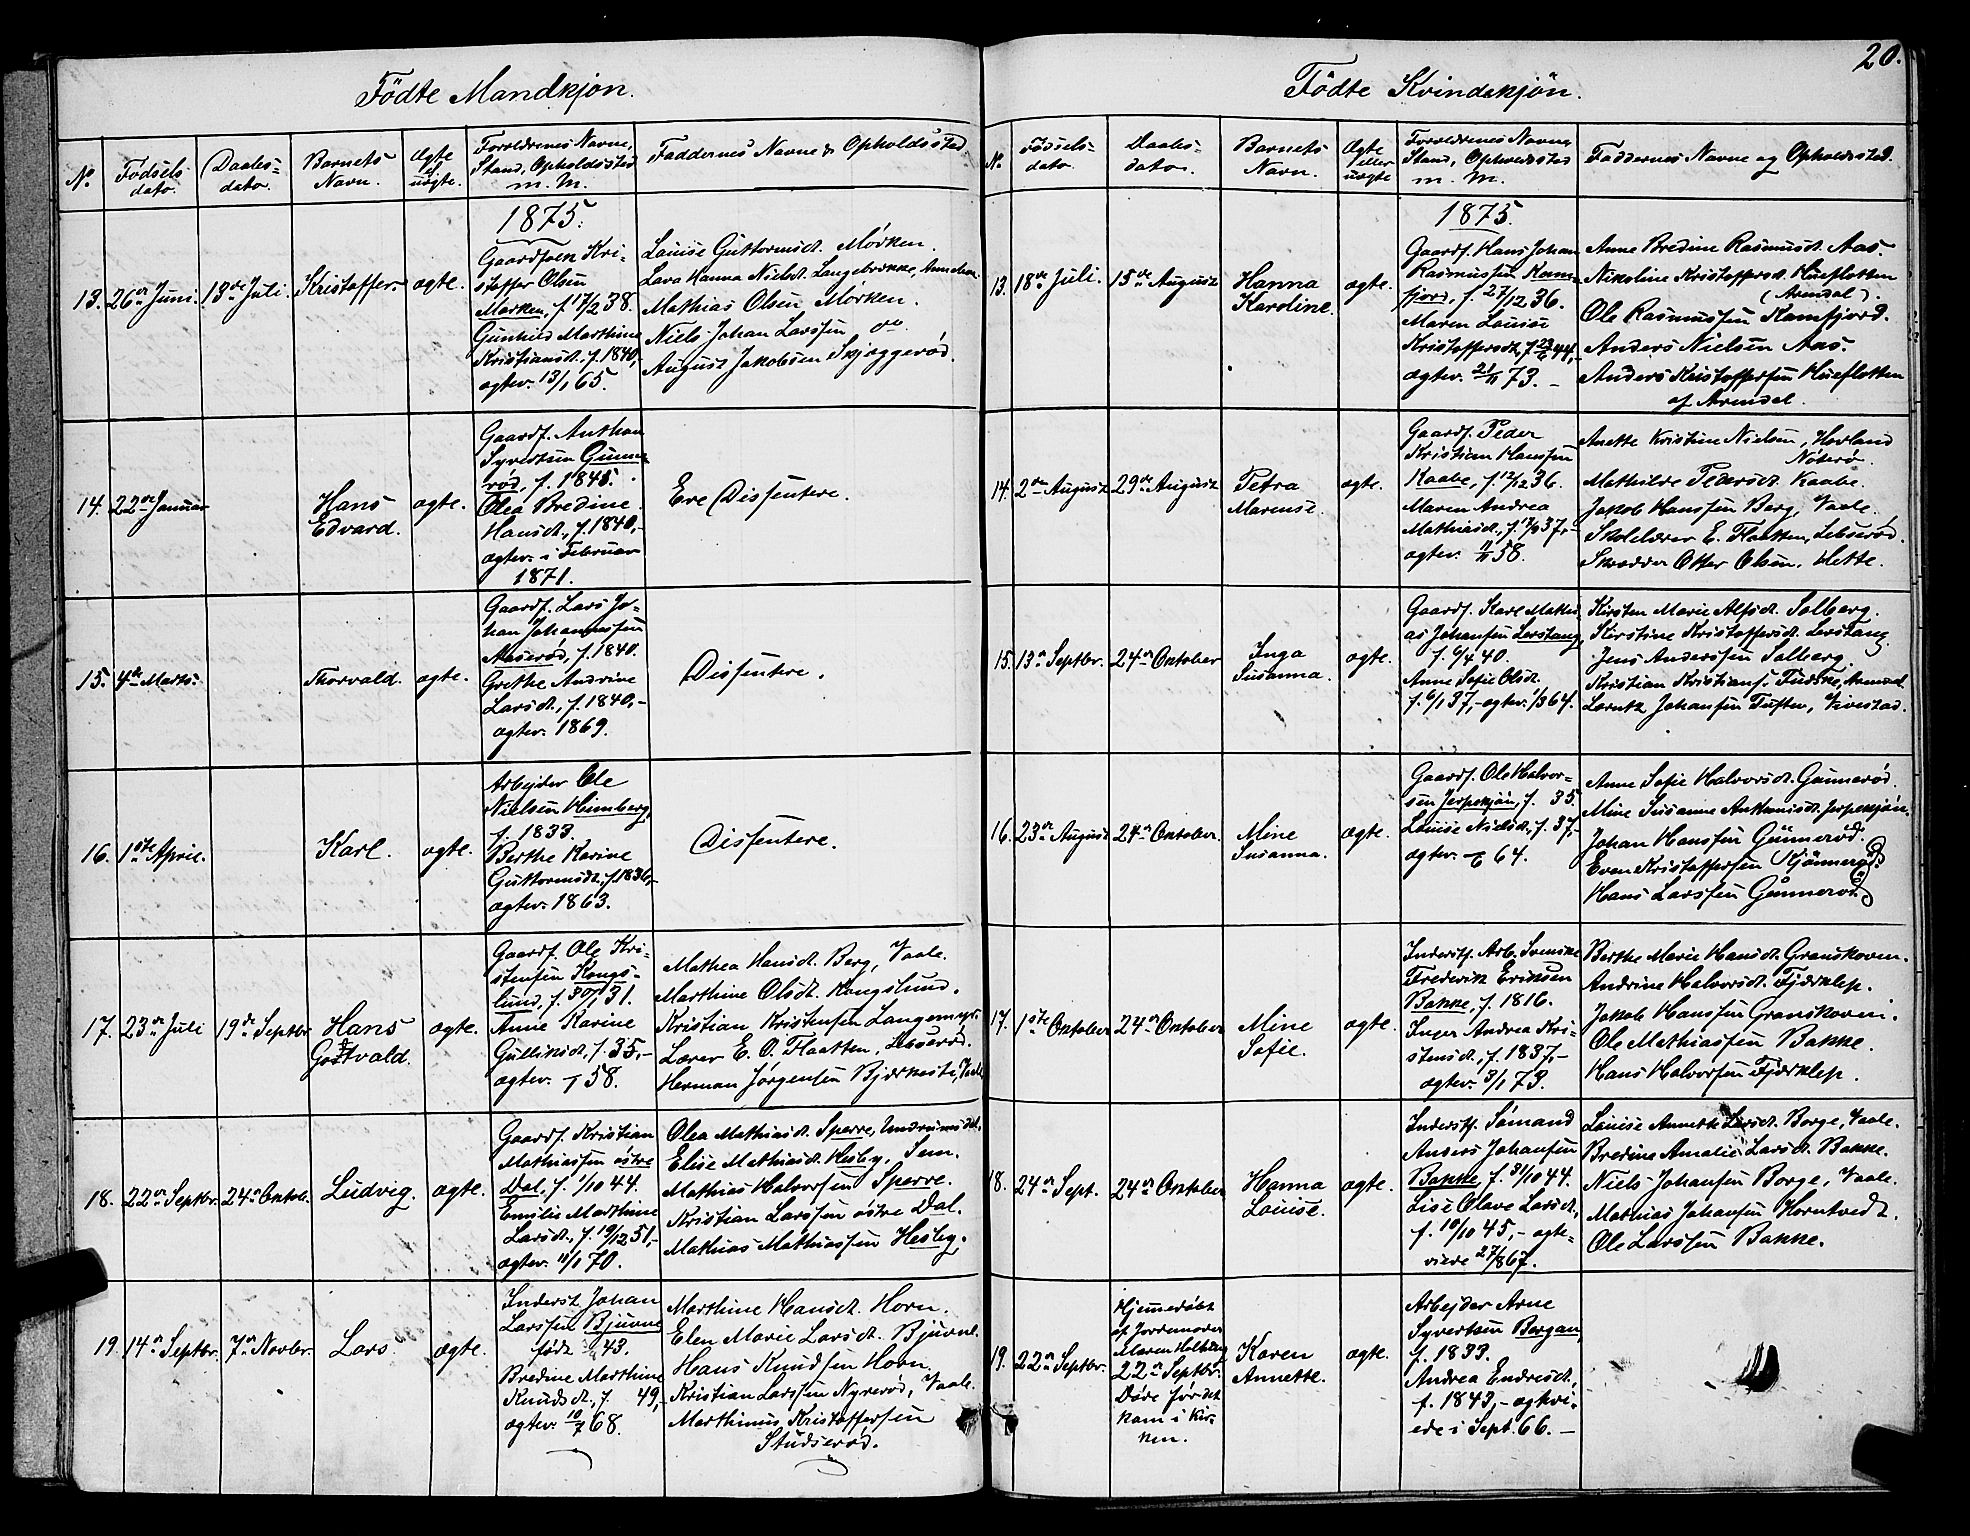 20.
Födte Mandkjøn.
No.
Födsels
dato.
Daabs-
dato.
Barnets
Navn.
Ægte
el.
uægte.
Forældrenes Navne,
Stand, Opholdssted
m. M.
Faddernes Navne & Opholdssted
1875.
13. 26de Juni. 18de Juli. Kristoffer. ægte.
Kri-
stoffer Olsen
Mørken, f. 17/2 38.
Gunhild Marthine
Kristiansdt., f. 1840,-
ægtev. 13/1 65.
Louise Guttormsdt. Mørken.
Lava Hanna Nielsdt. Langebrække,
Mathias Olsen Mørken.
Niels Johan Larssen do
August Jakobsen Skjæggerød.
14. 22de Januar
Hans
Edvard.
ægte.
Gaardf. Anthon
Syvertsen Gunne-
rød, f. 1845.
Olea Bredine
Hansdt., f. 1840,-
ægtev. i Februar
1871.
Ev. Dissentere.
15. 4de Marts.
Thorvald.
ægte.
Gaardf. Lars Jo-
han Johannessen
Aaserød, f. 1840.
Grethe Andrine
Larsdt., f. 1840,-
ægtev. 1869.
Dissentere.
16. 1ste April.
Karl.
ægte.
Arbejder Ole
Nielsen Himberg,
f. 1833.
Berthe Karine
Guttormsdt., f. 1836,-
ægtev. 1863.
Dissentere.
17. 23de Juli 19de Septbr.
Hans
Gostvald.
ægte.
Gaardf. Ole Kri-
stensen Kongs-
lund, f. 30/1 31.
Anne Karine
Gulliksdt., f. 35,-
ægtev. 58.
Mathea Hansdt. Berg, Vaale.
Marthine Olsdt. Kongslund.
Kristian Kristensen Langemyr.
Lærer E. O. Flaatten, Løuserød.
Herman Jørgensen Bjærkesti, Vaale
18. 22de Septbr. 24de Oktob.
Ludvig.
ægte.
Gaardf. Kristian
Mathiassen østre
Dal, f. 1/10 44.
Emilie Marthine
Larsdt., f. 19/12 51,-
ægtev. 11/1 70.
Olea Mathiasdt. Sperre, Undrumsdal.
Elise Mathiasdt. Hesby, Sem.
Mathias Halvorssen Sperre.
Kristian Larssen østre Dal.
Mathias Mathiassen Hesby.
19. 14de Septbr. 7de Novbr.
Lars.
ægte.
Inderst Johan
Larssen Bjuerne
født 43.
Bredine Marthine
Knudsdt., f. 49,-
ægtev. 10/7 68.
Marthine Hansdt. Horn.
Elen Marie Larsdt. Bjuerne.
Hans Knudssen Horn.
Kristian Larssen Nyrerød, Vaale.
Marthinus Kristoffersen
Studserød.
Födte Kvindekjön.
No.
Födsels-
dato.
Daabs-
dato.
Barnets
Navn.
Ægte
eller
uægte
Forældrenes Navne,
Stand, Opholdssted
m. M.
Faddernes Navne og Opholdssted.
1875.
13. 18de Juli. 15de August
Hanna
Kardine.
ægte.
Gaardf. Hans Johan
Rasmussen Kam-
fjord, f. 27/12 36.
Maren Louise
Kristoffersdt., f. 23/6 44,-
ægtev. 21/11 73. -
Anne Bredine Rasmusdt. Aas.
Nikoline Kristoffersdt. Hueflotten
(Arendal).
Ole Rasmussen Kamfjord.
Anders Nielsen Aas.
Anders Kristoffersen Hueflotten
af Arendal.
14. 2den August 29de August
Petra
Marense.
ægte.
Gaardf. Peder
Kristian Hanssen
Kaabe, f. 12/12 36.
Maren Andrea
Mathiasdt., f. 17/9 37,-
ægtev. 11/11 58.
Anette Kristine Nielsen, Hovland
Nøterø.
Mathilde Pedersdt. Kaabe.
Jakob Hanssen Berg, Vaale.
Skolelærer E. Flaatten, Løuserød.
Skrædder Otter Olsen, Hette.
15. 13de Septbr. 24de Oktober
Inga
Susanna.
ægte.
Gaardf. Karl Mathi-
as Johansen Lerstang,
f. 6/4 40.
Anne Sofie Olsdt.
f. 6/1 37,- ægtev. 1/3 64.
Kirsten Marie Alfsdt. Solberg.
Kirstine Kristoffersdt. Lerstang
Jens Anderssen Solberg.
Kristian Kristians.
Lorentz Johansen Tufter, Vivestad.
16. 23de August 24de Oktober.
Mine
Susanna.
ægte.
Gaardf. Ole Halvor-
sen Jerpekjøn, f. 35.
Louise Nielsdt., f. 37,-
ægtev. 64.
Anne Sofie Halvorsdt. Gunnerød.
Mine Susanne Anthonisdt. Jerpekjøn.
Johan Hanssen Gunnerød.
Even Kristoffersen Kjønnerød.
Hans Larssen Gunnerød.
17. 1ste Oktober 24de Oktober
Mine
Sofie.
ægte.
Inderst, Arb. Svenske
Frederik Eriksen
Bakke, f. 1816.
Inger Andrea Kri-
stensdt., f. 1837,-
ægtev. 3/1 73.
Berthe Marie Hansdt. Granskoven.
Andrine Halvorsdt. Fjærklep.
Jakob Hanssen Granskoven.
Ole Mathiassen Bakke.
Hans Halvorsen Fjærklep.
18. 24de Sept. 24de Oktober
Hanna
Louise.
ægte.
Inderst, Sømand
Anders Johansen
Bakke, f. 31/10 44.
Lise Olave Larsdt.,
f. 10/10 45,- ægte-
viede 27/8 67.
Louise Annette Larsdt. Borge, Vaale.
Bredine Amalie Larsdt. Bakke.
Niels Johansen Borge, Vaale.
Mathias Johansen Horntvedt.
Ole Larssen Bakke.
19. 22de Septbr.
Hjemmedøbt
af Jordemoder
Maren Holtung
22de Septbr.
Døde før det
kom i Kir-
ken.
Karen
Annette.
ægte.
Arbejder Arne
Syvertsen Bergan,
f. 1833.
Andrea Endresdt.,
f. 1843,- ægtevi-
ede i Sept. 66. -